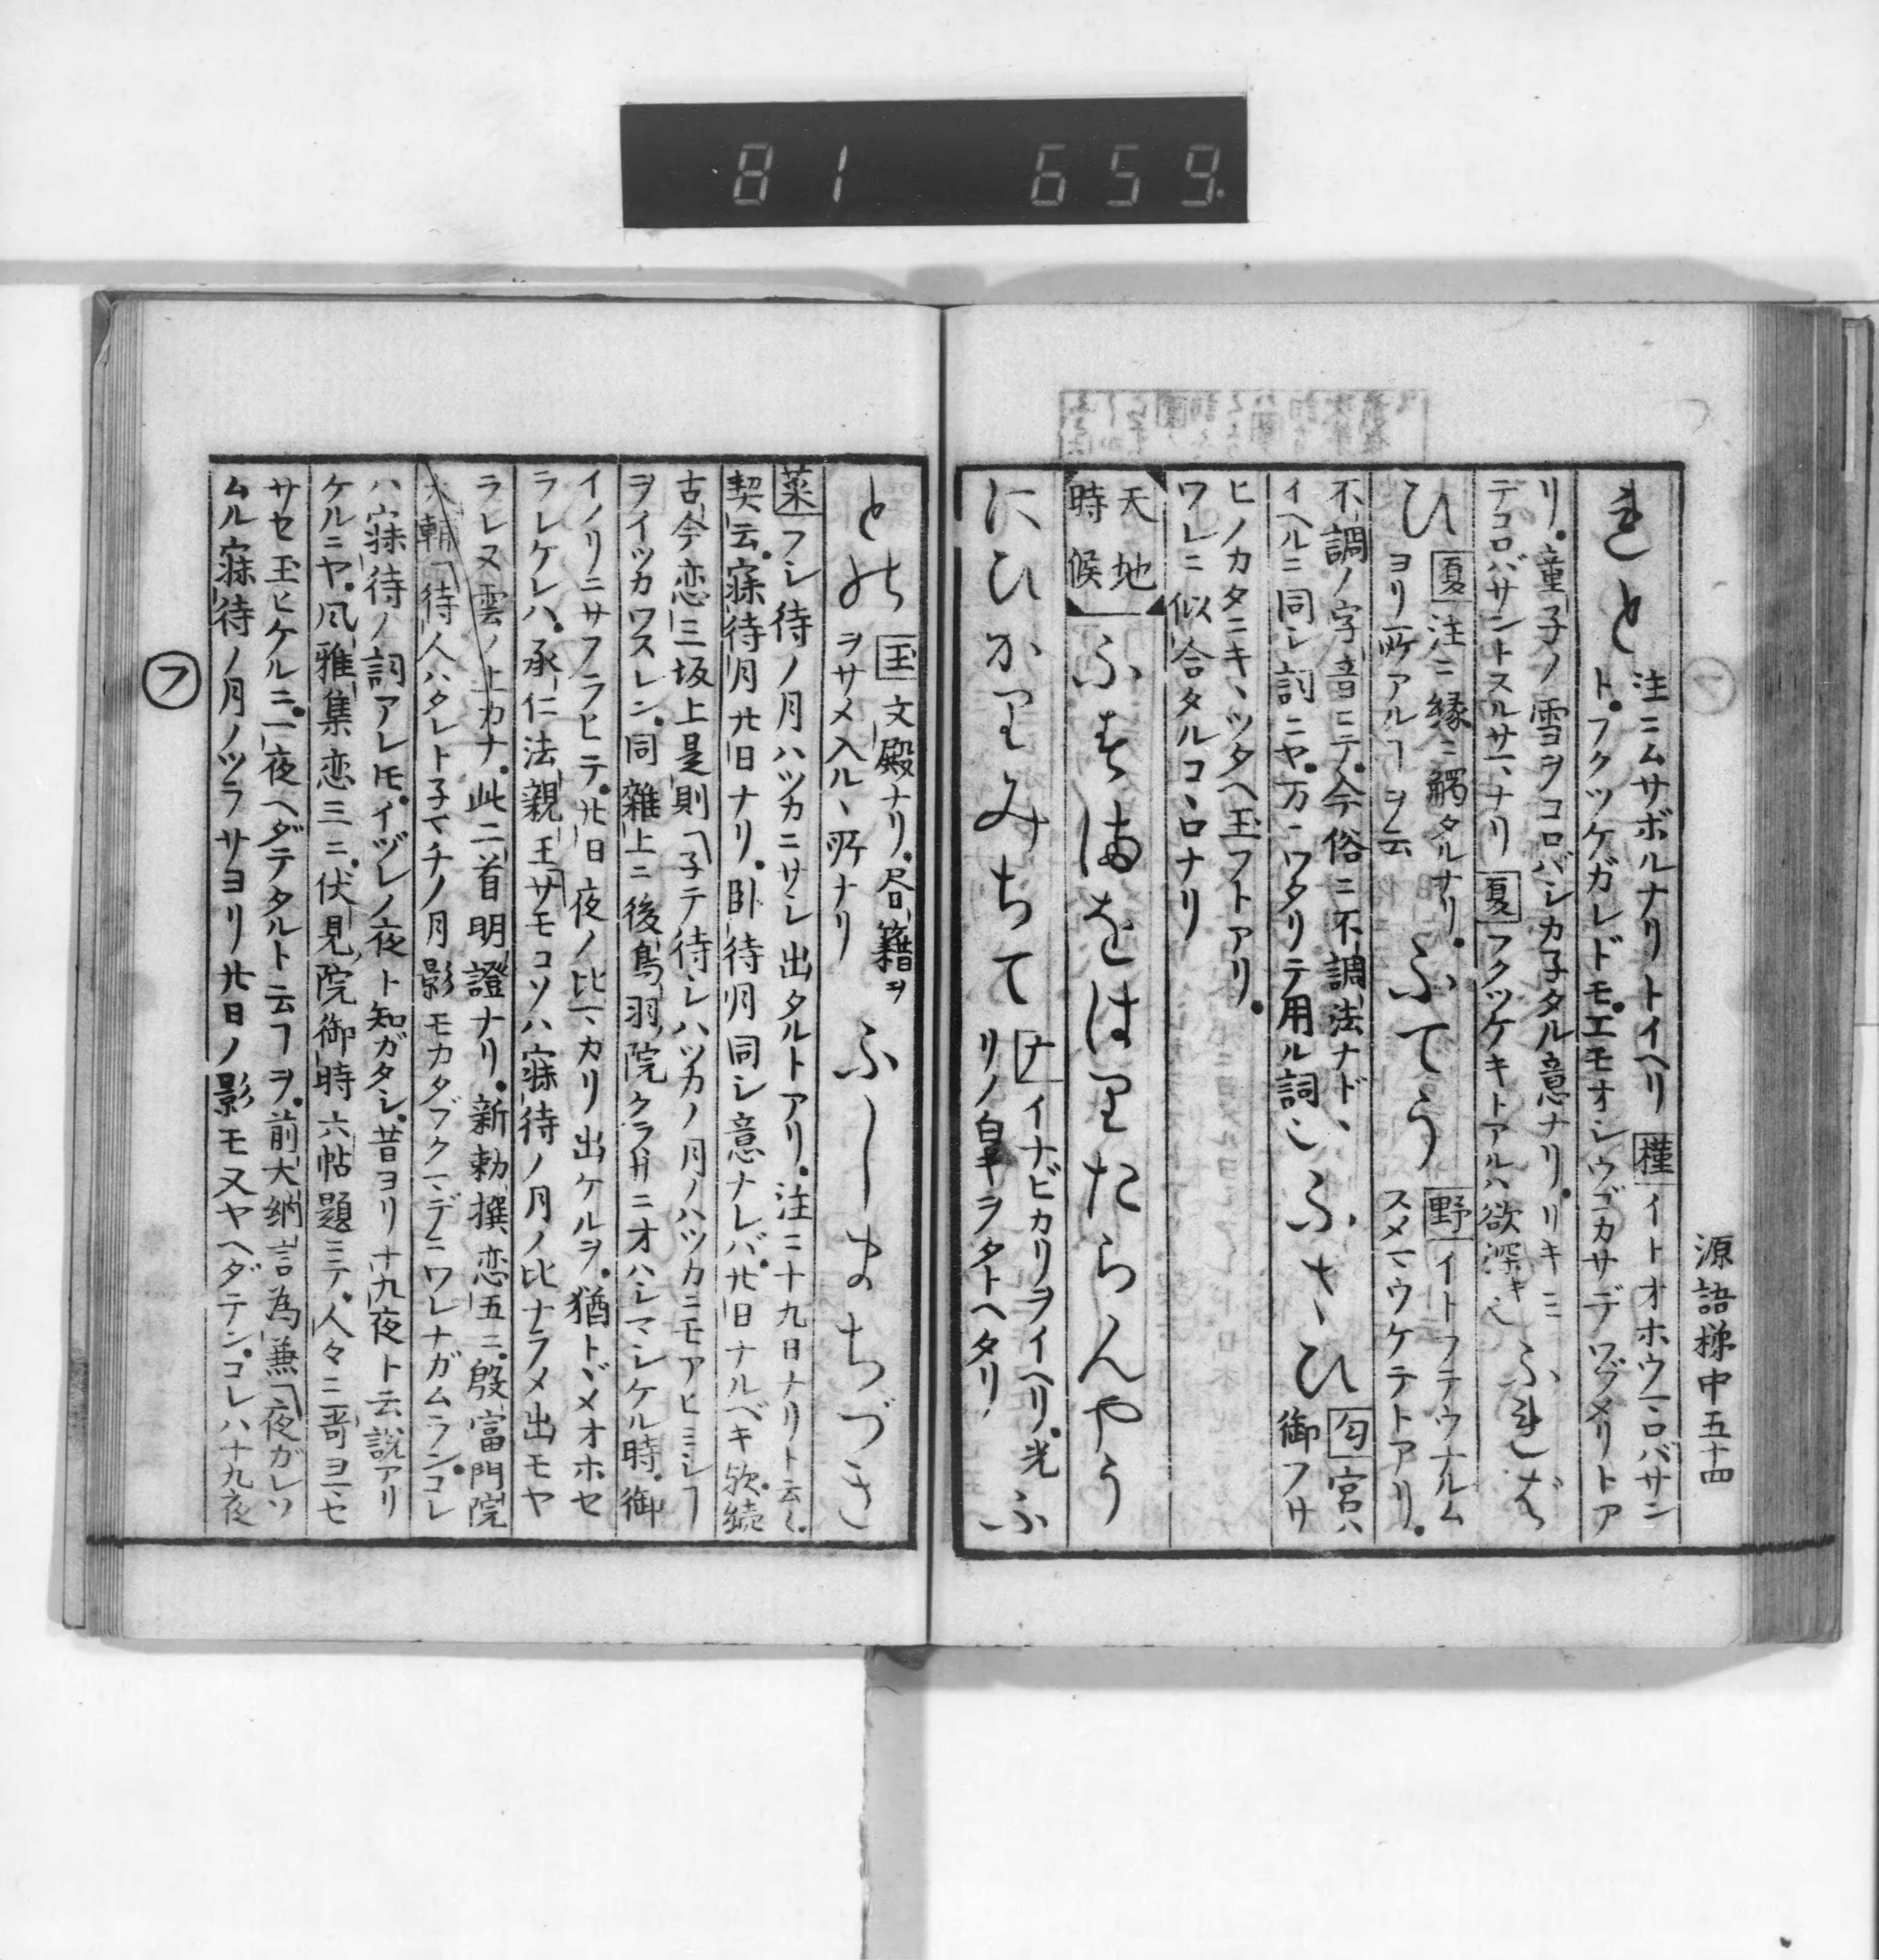 81 659
源語梯中五十四
れと 注ニムサボルナリトイヘリ 槿 イトオホウコロバサン
ト。フクツケガレドモ。エモオシウゴカサデワヅメリトア
リ。童子ノ雪ヲコロバシカ子タル意ナリ。リキミ
テコロバサントスルサマナリ 夏 フクツケキトアルハ欲深キ也 ふれば
ひ 夏 注ニ縁ニ觸タルナリ。
ヨリ所アルヿヲ云 ふてう 野 イトフテウナルム
スメマウケテトアリ。
不調ノ字音ニテ。今俗ニ不調法ナド、
イヘルニ同シ詞ニヤ。万ニワタリテ用ル詞也 ふさひ 匂 宮ハ
御フサ
ヒノカタニキヽツタヘ玉フトアリ。
ワレニ似合タルコヽロナリ
天地
時候
ふすまをはりたらんやう
にひかりみちて ナ イナビカリヲイヘリ。光
リノ白キヲタトヘタリ ふ
との 玉 文殿ナリ。書籍ヲ
ヲサメ入ルヽ所ナリ ふしまちづき
菜 フシ待ノ月ハツカニサシ出タルトアリ。注ニ十九日ナリト云々。
契云。寐待月廿日ナリ。臥待月同シ意ナレバ。廿日ナルベキ欤。続
古今恋三坂上是則「子テ待シハツカノ月ノハツカニモアヒミシヿ
ヲイツカワスレン。同雜上ニ後鳥羽院クラ井ニオハシマシケル時。御
イノリニサフラヒテ。廿日夜ノ比マカリ出ケルヲ。猶トヾメオホセ
ラレケレハ。承仁法親王「サモコソハ寐待ノ月ノ比ナラメ出モヤ
ラレヌ雲ノ上カナ。此二首明證ナリ。新勅撰恋五ニ。殷富門院
大輔「待人ハタレト子マチノ月影モカタブクマデニワレナガムラン。コレ
ハ寐待ノ詞アレ𪜈。イヅレノ夜ト知ガタシ。昔ヨリ十九夜ト云説アリ
ケルニヤ。風雅集恋三ニ。伏見院御時六帖題ニテ。人々ニ哥ヨマセ
サセ玉ヒケルニ。一夜ヘダテタルト云ヿヲ。前大納言為兼「一夜ガレソ
ムル寐待ノ月ノツラサヨリ廿日ノ影モ又ヤヘダテン。コレハ十九夜
フ